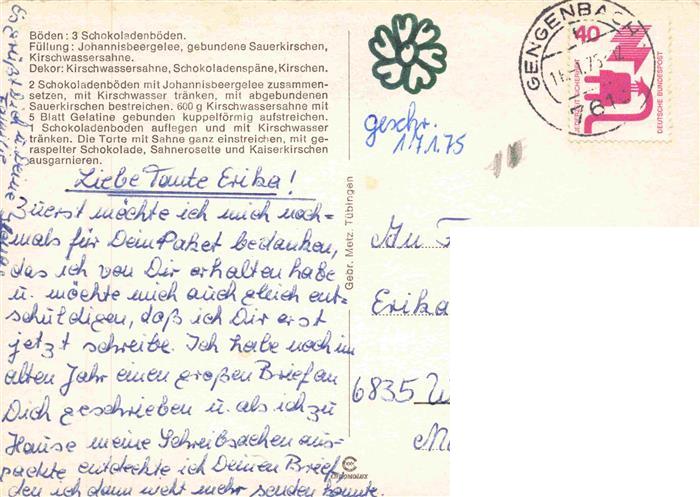 Böden: 3 Schokoladenböden.
Füllung: Johannisbeergelee, gebundene Sauerkirschen,
Kirschwassersahne.
Dekor: Kirschwassersahne, Schokoladenspäne, Kirschen.
2 Schokoladenböden mit Johannisbeergelee zusammen-
setzen, mit Kirschwasser tränken, mit abgebundenen
Sauerkirschen bestreichen. 600 g Kirschwassersahne mit
5 Blatt Gelatine gebunden kuppelförmig aufstreichen.
1 Schokoladenboden auflegen und mit Kirschwasser
tränken. Die Torte mit Sahne ganz einstreichen, mit ge-
raspelter Schokolade, Sahnerosette und Kaiserkirschen
ausgarnieren.
Liebe Tante Erika!
Zuerst möchte ich mich noch=
mals für Dein Paket bedanken,
das ich von Dir erhalten habe
u. möchte mich auch gleich ent=
schuldigen, daß ich Dir erst
jetzt schreibe. Ich habe noch im
alten Jahr einen großen Brief an
Dich geschrieben u. als ich zu
Hause meine Schreibsachen aus=
packte entdeckte ich Deinen Brief
den ich dann nicht mehr senden konnte.
Es grüßt Dich u. Deine
Familie
Gebr. Metz, Tübingen
CHROMOLUX
geschr.
17.1.75
GENGENBACH
61
40
JEDERZEIT SICHERHEIT
DEUTSCHE BUNDESPOST
An
Erika
6835